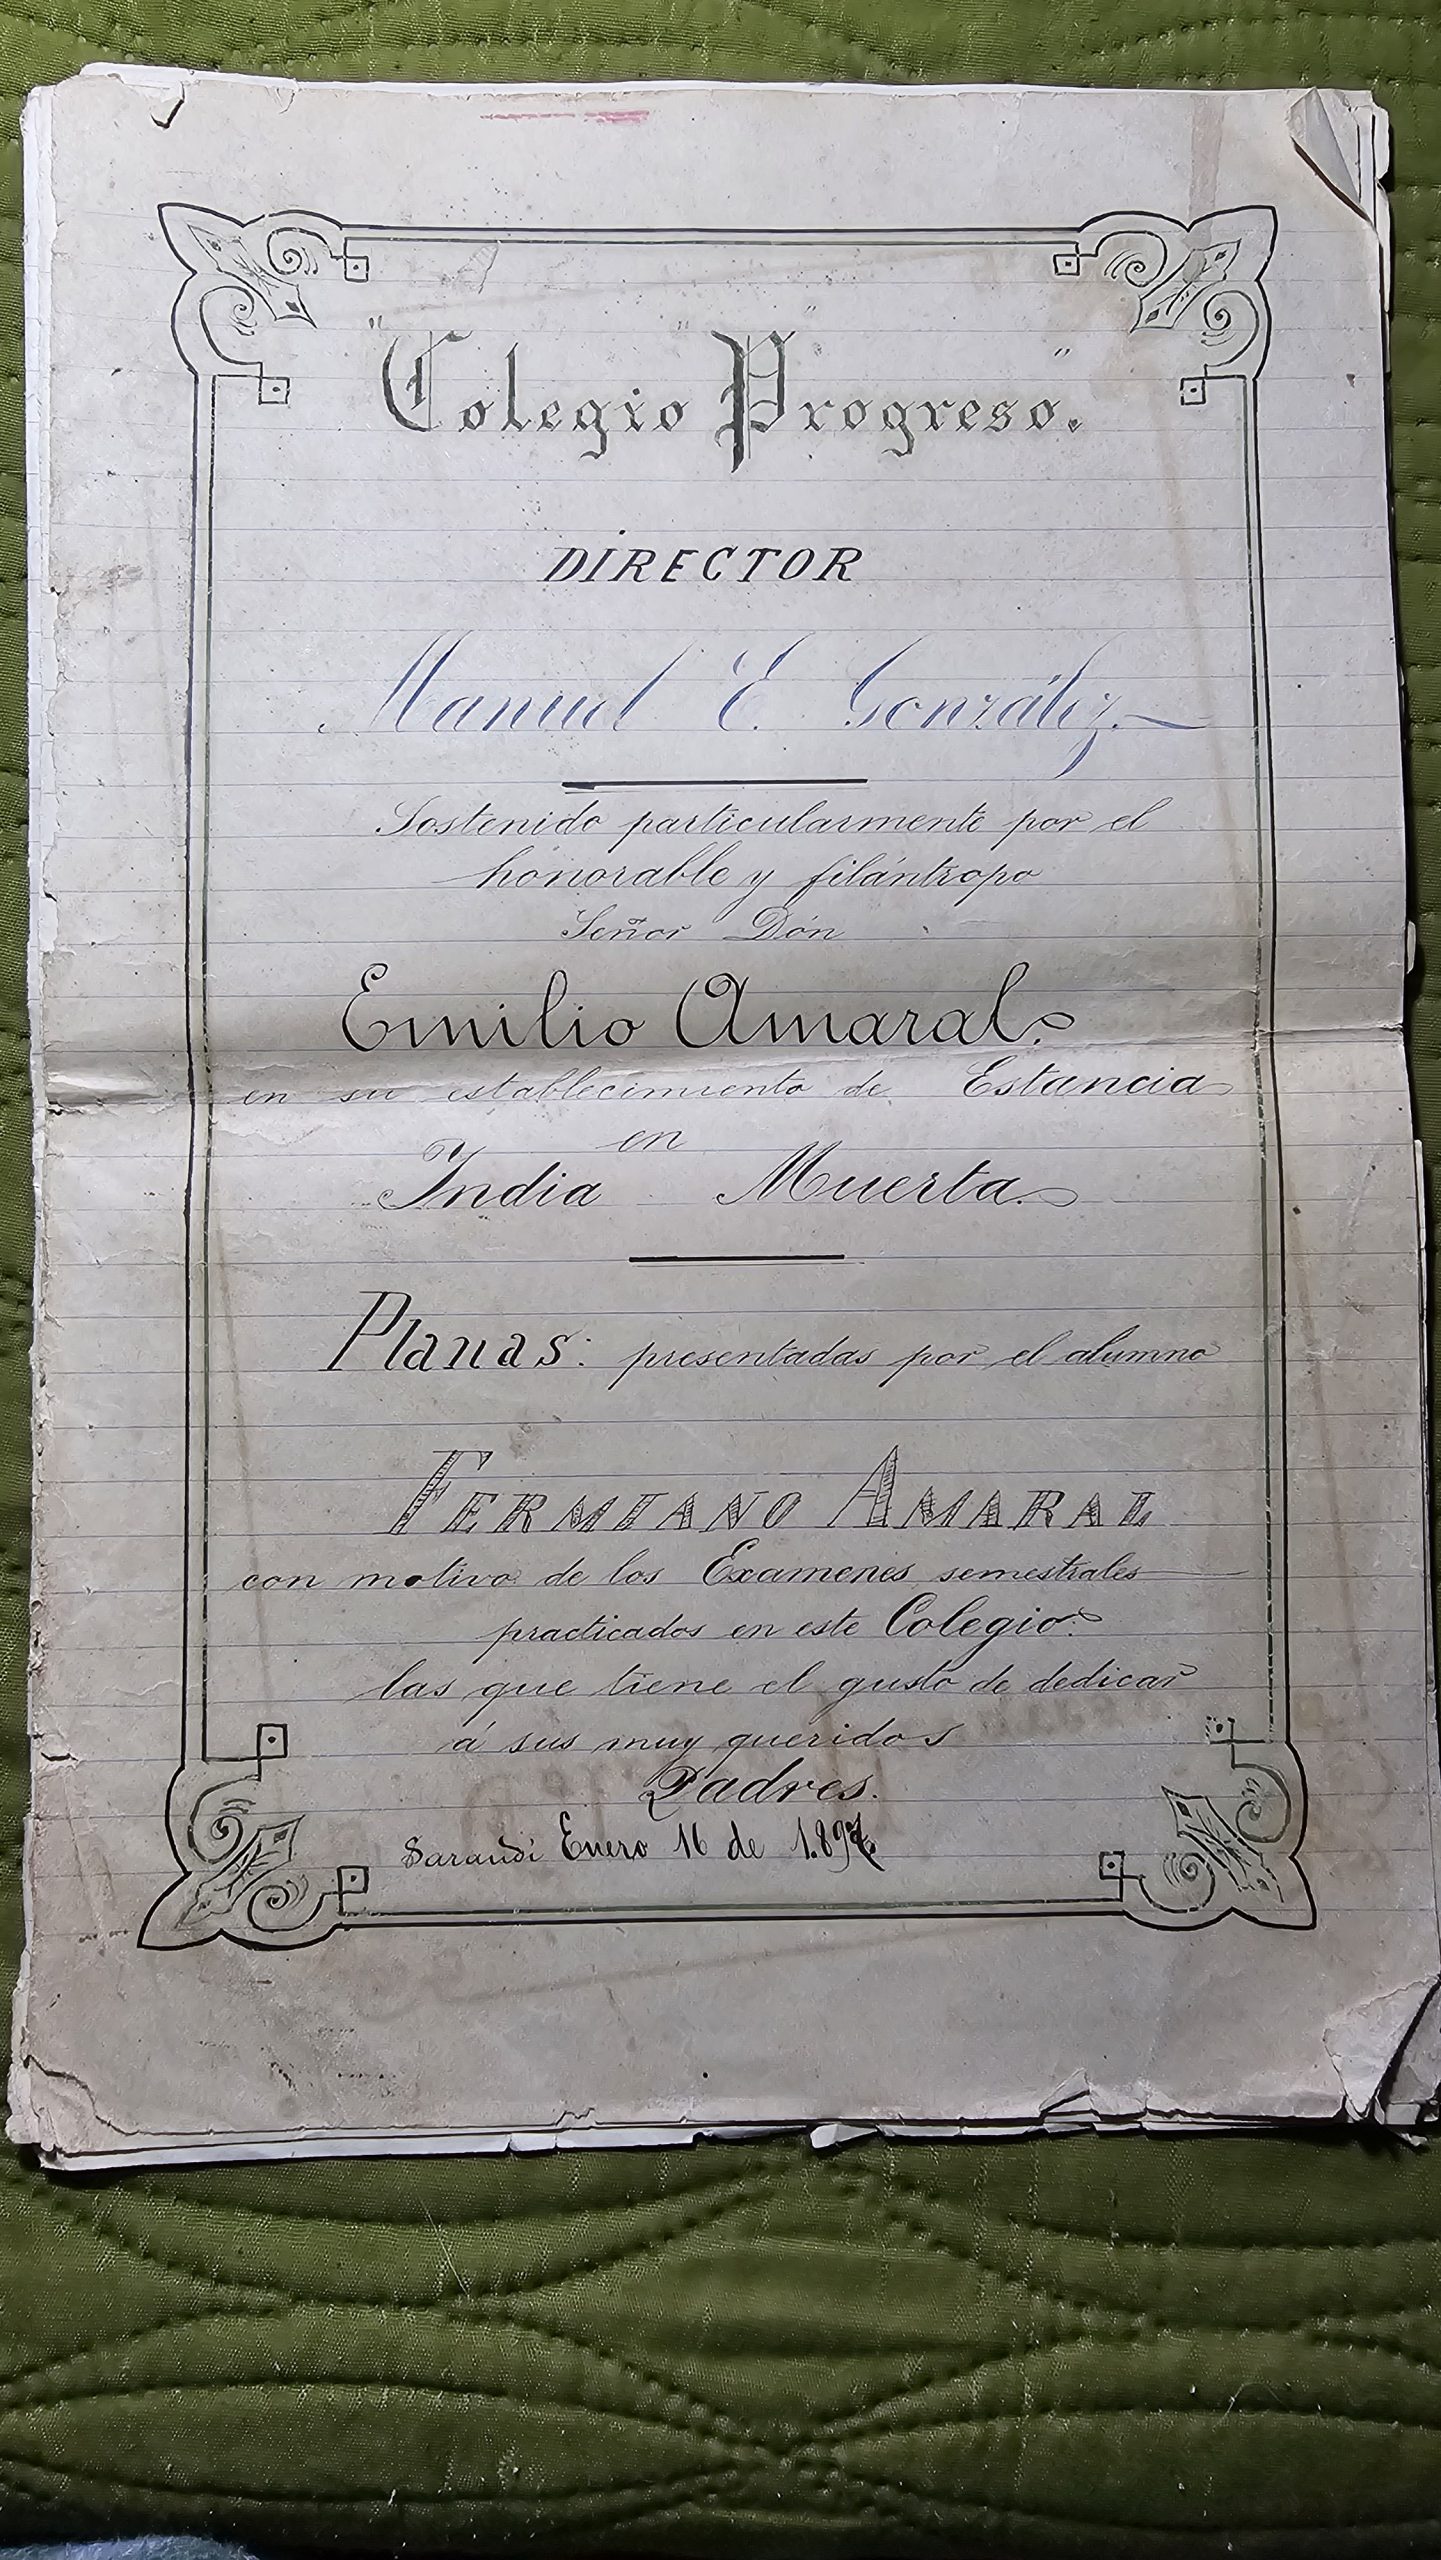 "Colegio" "Progreso."
DIRECTOR
Manuel E. González.
Sostenido particularmente por el
honorable y filántropo
Señor Dón
Emilio Amaral.
en su establecimiento de Estancia
en
India Muerta.
Planas: presentadas por el alumno
FERMIANO AMARAL
con motivo de los Examenes semestrales
practicados en este Colegio.
las que tiene el gusto de dedicar
á sus muy queridos
Padres.
Sarandí Enero 16 de